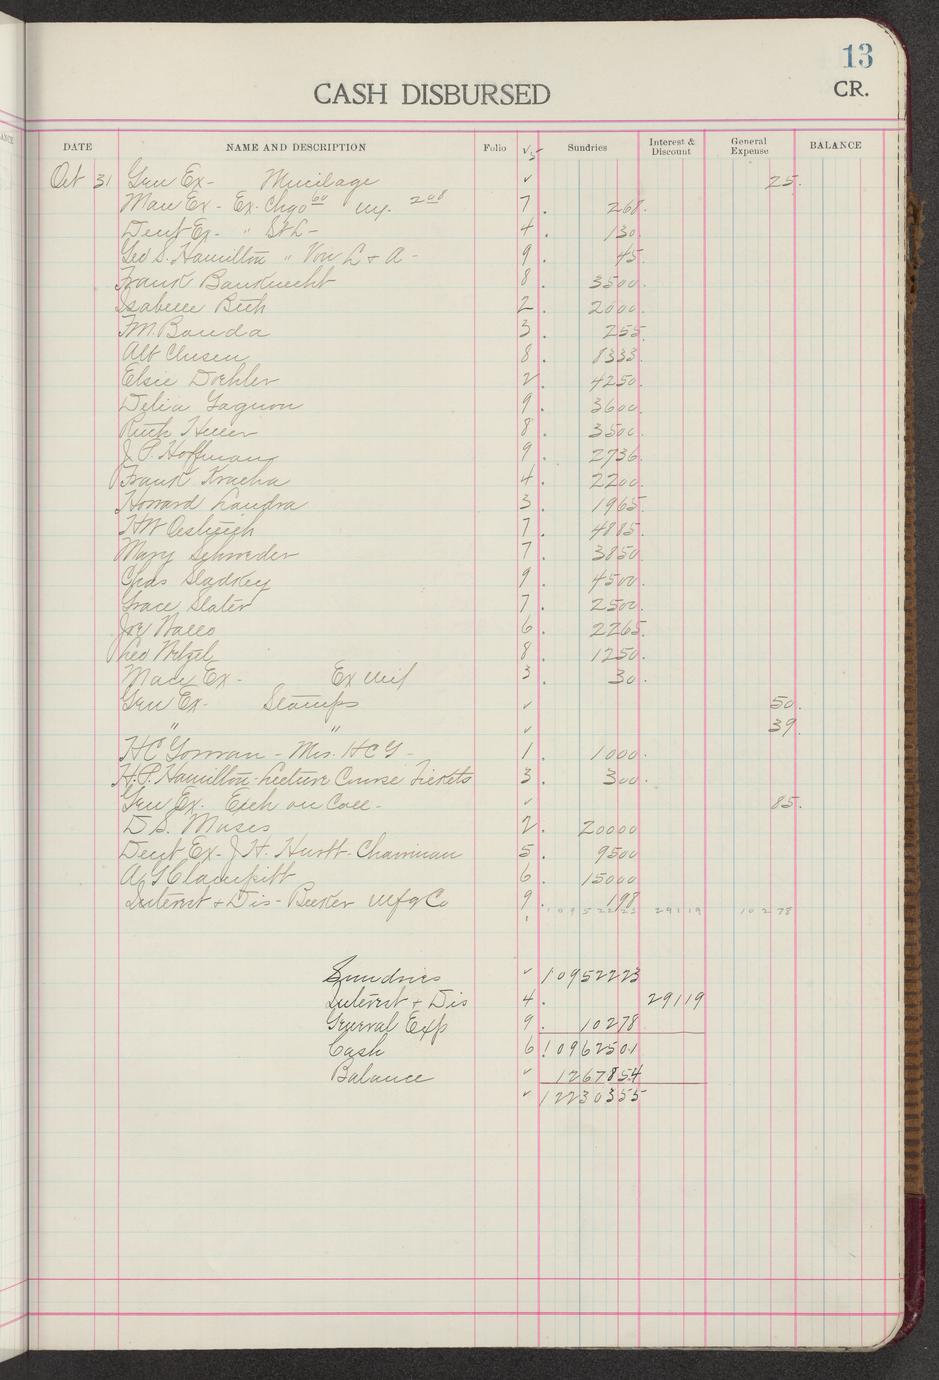 13
CASH DISBURSED
CR.
DATE NAME AND DESCRIPTION Folio √ Sundries Interest & Discount General Expense BALANCE
Oct 31 Gen Ex- Mucilage ✓ 25.
Man Ex- Ex. Chgo 60 Ny. 2 08 7. 268.
Dent Ex- " St L- 4. 130.
Geo S. Hamilton " Von L + A - 9. 45.
Frank Bauknecht 8. 3500.
Isabelle Beth 2. 2000.
FM. Bouda 3. 255.
Alb Clusen 8. 8333.
Elsie Doehler 2. 4250.
Delia Gagnon 9. 3600.
Ruth Heller 8. 3500.
J. P. Hoffman 9. 2736.
Frank Kracha 4. 2200.
Howard Landra 3. 1965.
HW 7. 4885.
Mary Schroeder 7. 3850.
Chas Sladkey 9. 4500.
Grace Slater 7. 2500.
Joe 6. 2265.
Leo Wetzel 8. 1250.
Man Ex- Ex Mil 3. 30.
Gen Ex- Stamps ✓ 50.
" " ✓ 39.
HC Gorman - Mrs. HCG - 1. 1000.
H.P. Hamilton- Lecture Course Tickets 3. 300.
Gen Ex. Exch on Coll- ✓ 85.
D S. Moses 2. 20000
Dent Ex- J H. Hurtt- Chairman 5. 9500
A G Clampitt 6. 15000
Interest + Dis- Becker Mfg Co 9. 198
10952223 29119 10278
Sundries ✓ 10952223
Interest + Dis 4. 29119
General Exp 9. 10278
Cash 6 10962501
Balance ✓ 1267854
✓ 12230355